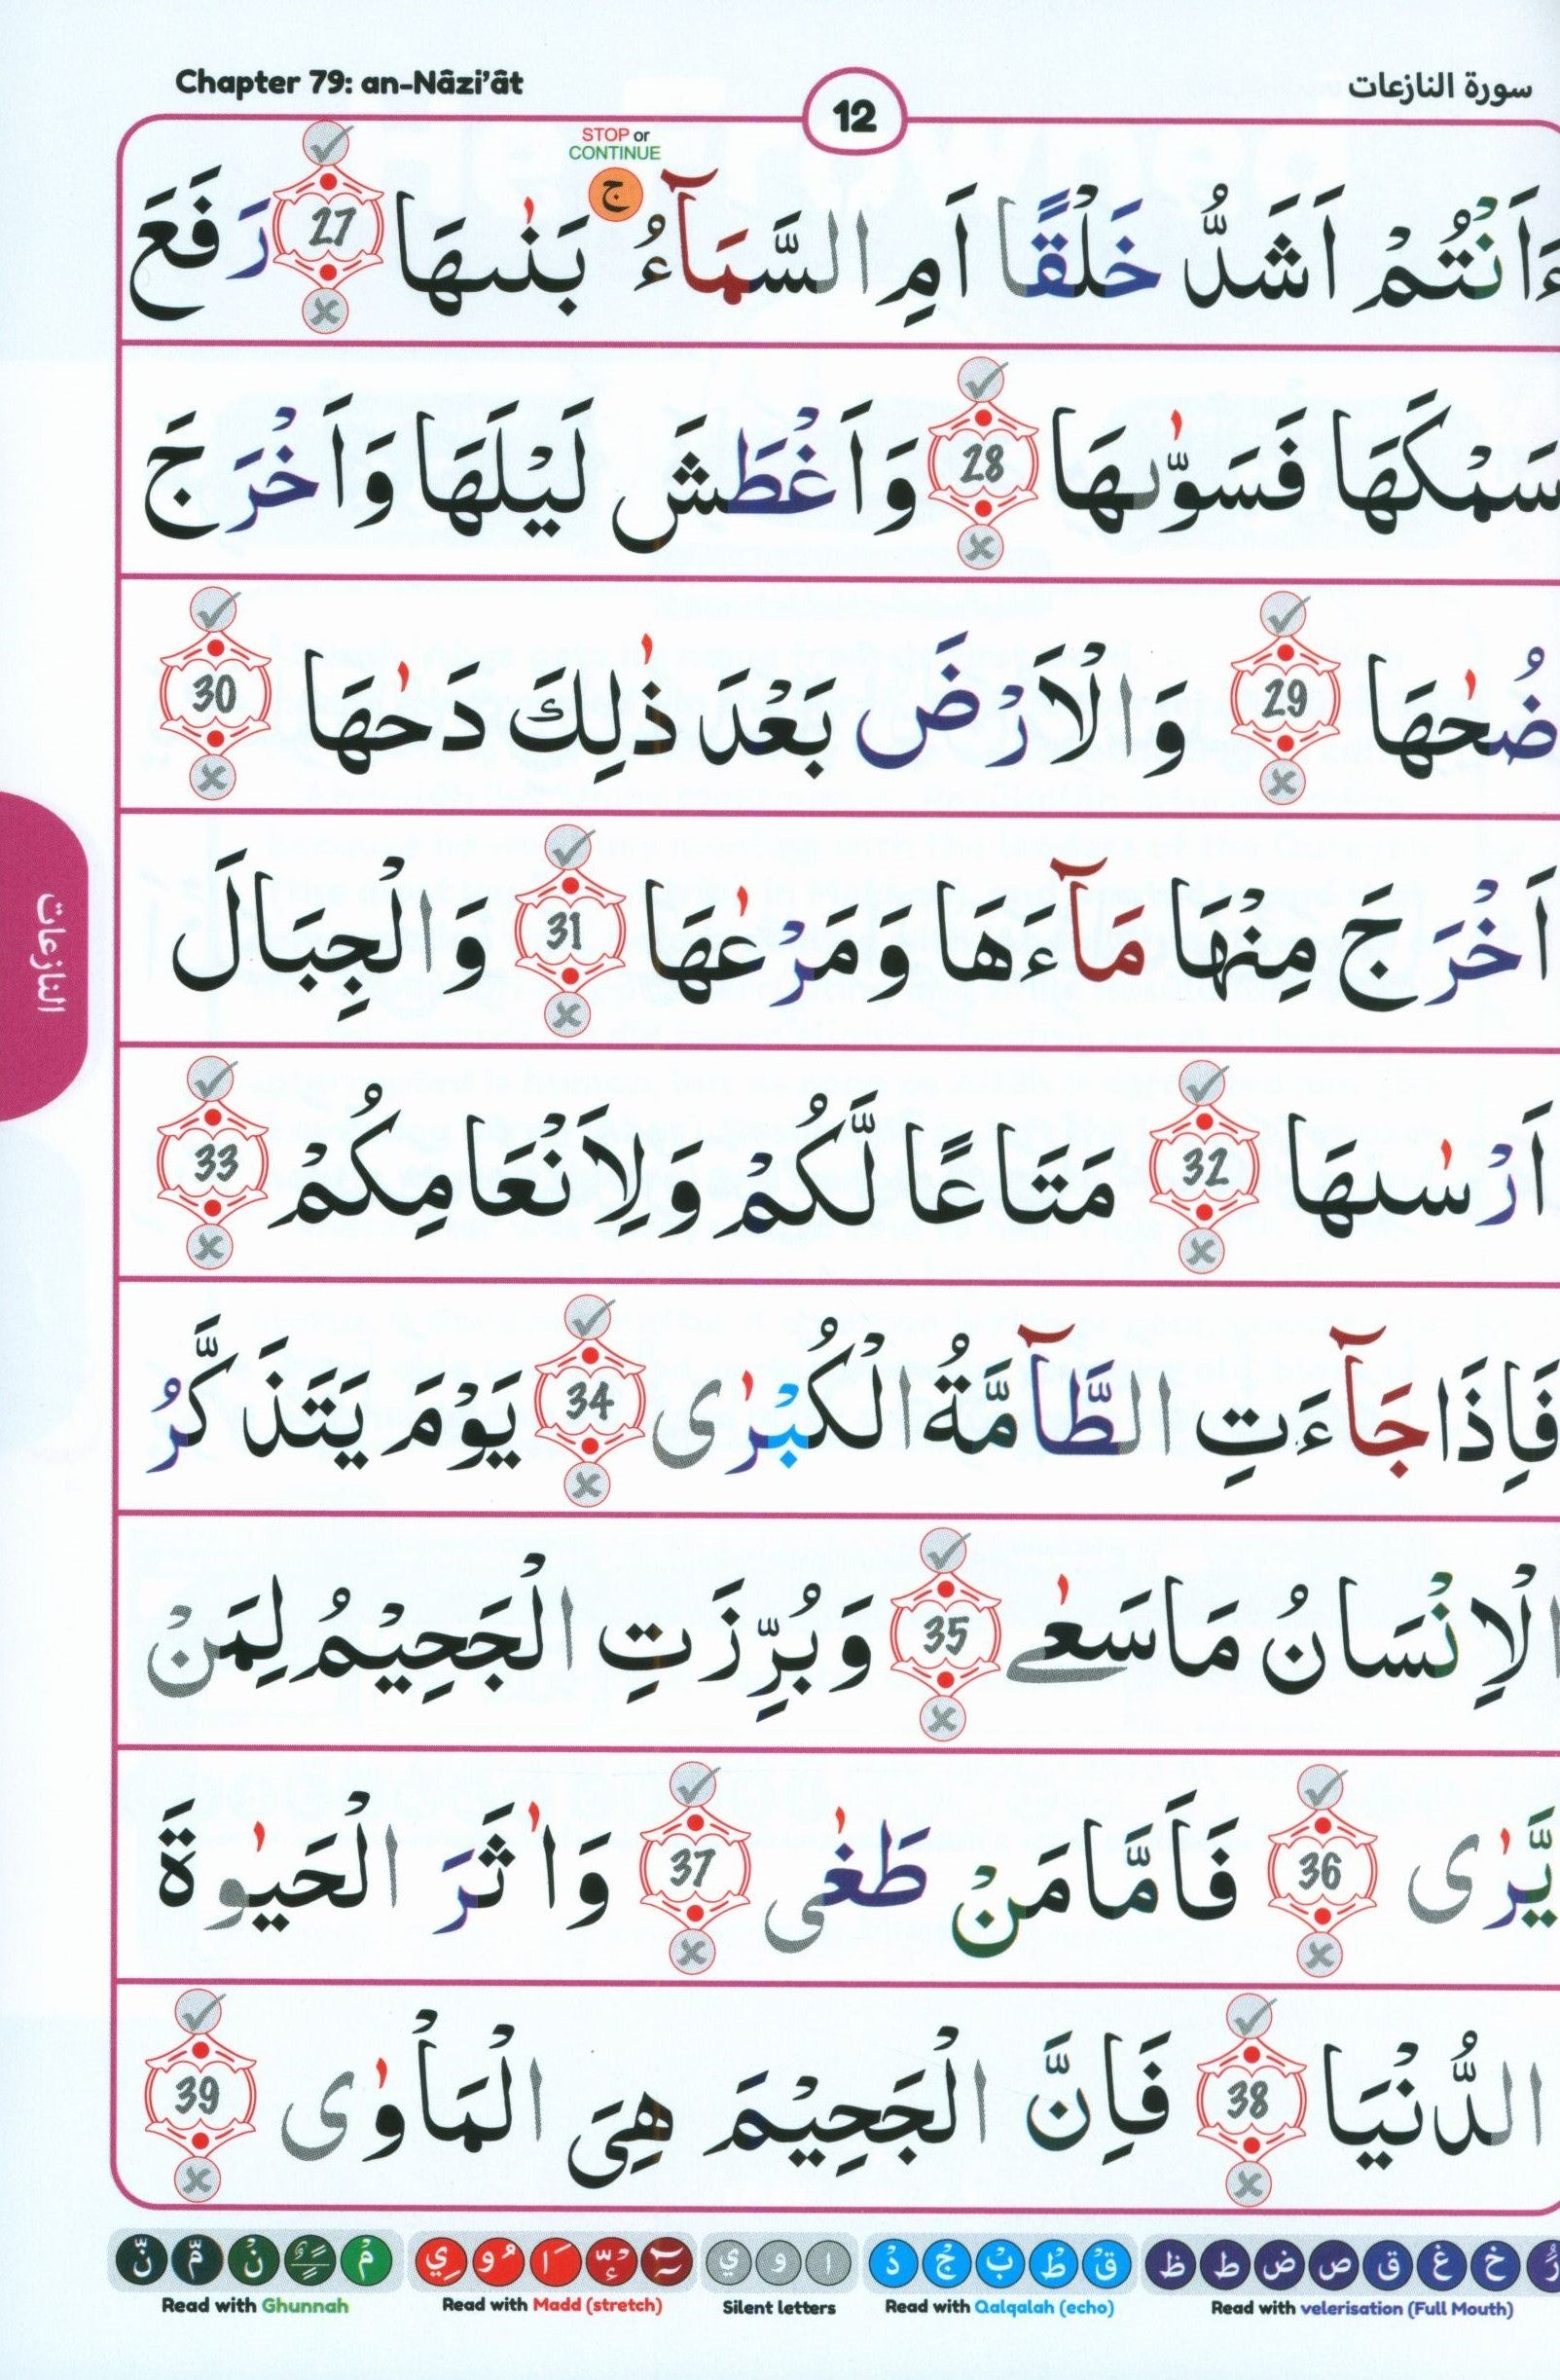 Chapter 79: an-Nâzi'ât 12 سورة النازعات
STOP or
CONTINUE
ءَاَنْتُمْ اَشَدُّ خَلْقًا اَمِ السَّمَآءُ ج بَنٰىهَا 27 رَفَعَ
سَمْكَهَا فَسَوّٰىهَا 28 وَاَغْطَشَ لَيْلَهَا وَاَخْرَجَ
ضُحٰهَا 29 وَالْاَرْضَ بَعْدَ ذٰلِكَ دَحٰهَا 30
اَخْرَجَ مِنْهَا مَآءَهَا وَمَرْعٰهَا 31 وَالْجِبَالَ
اَرْسٰىهَا 32 مَتَاعًا لَّكُمْ وَلِاَنْعَامِكُمْ 33
فَاِذَا جَآءَتِ الطَّآمَّةُ الْكُبْرٰى 34 يَوْمَ يَتَذَكَّرُ
الْاِنْسَانُ مَا سَعٰى 35 وَبُرِّزَتِ الْجَحِيْمُ لِمَنْ
يَّرٰى 36 فَاَمَّا مَنْ طَغٰى 37 وَاٰثَرَ الْحَيٰوةَ
الدُّنْيَا 38 فَاِنَّ الْجَحِيْمَ هِىَ الْمَاْوٰى 39
النازعات
Read with Ghunnah
Read with Madd (stretch)
Silent letters ا و ي
Read with Qalqalah (echo) قْ طْ بْ جْ دْ
Read with velerisation (Full Mouth) رُ خ غ ق ص ض ط ظ